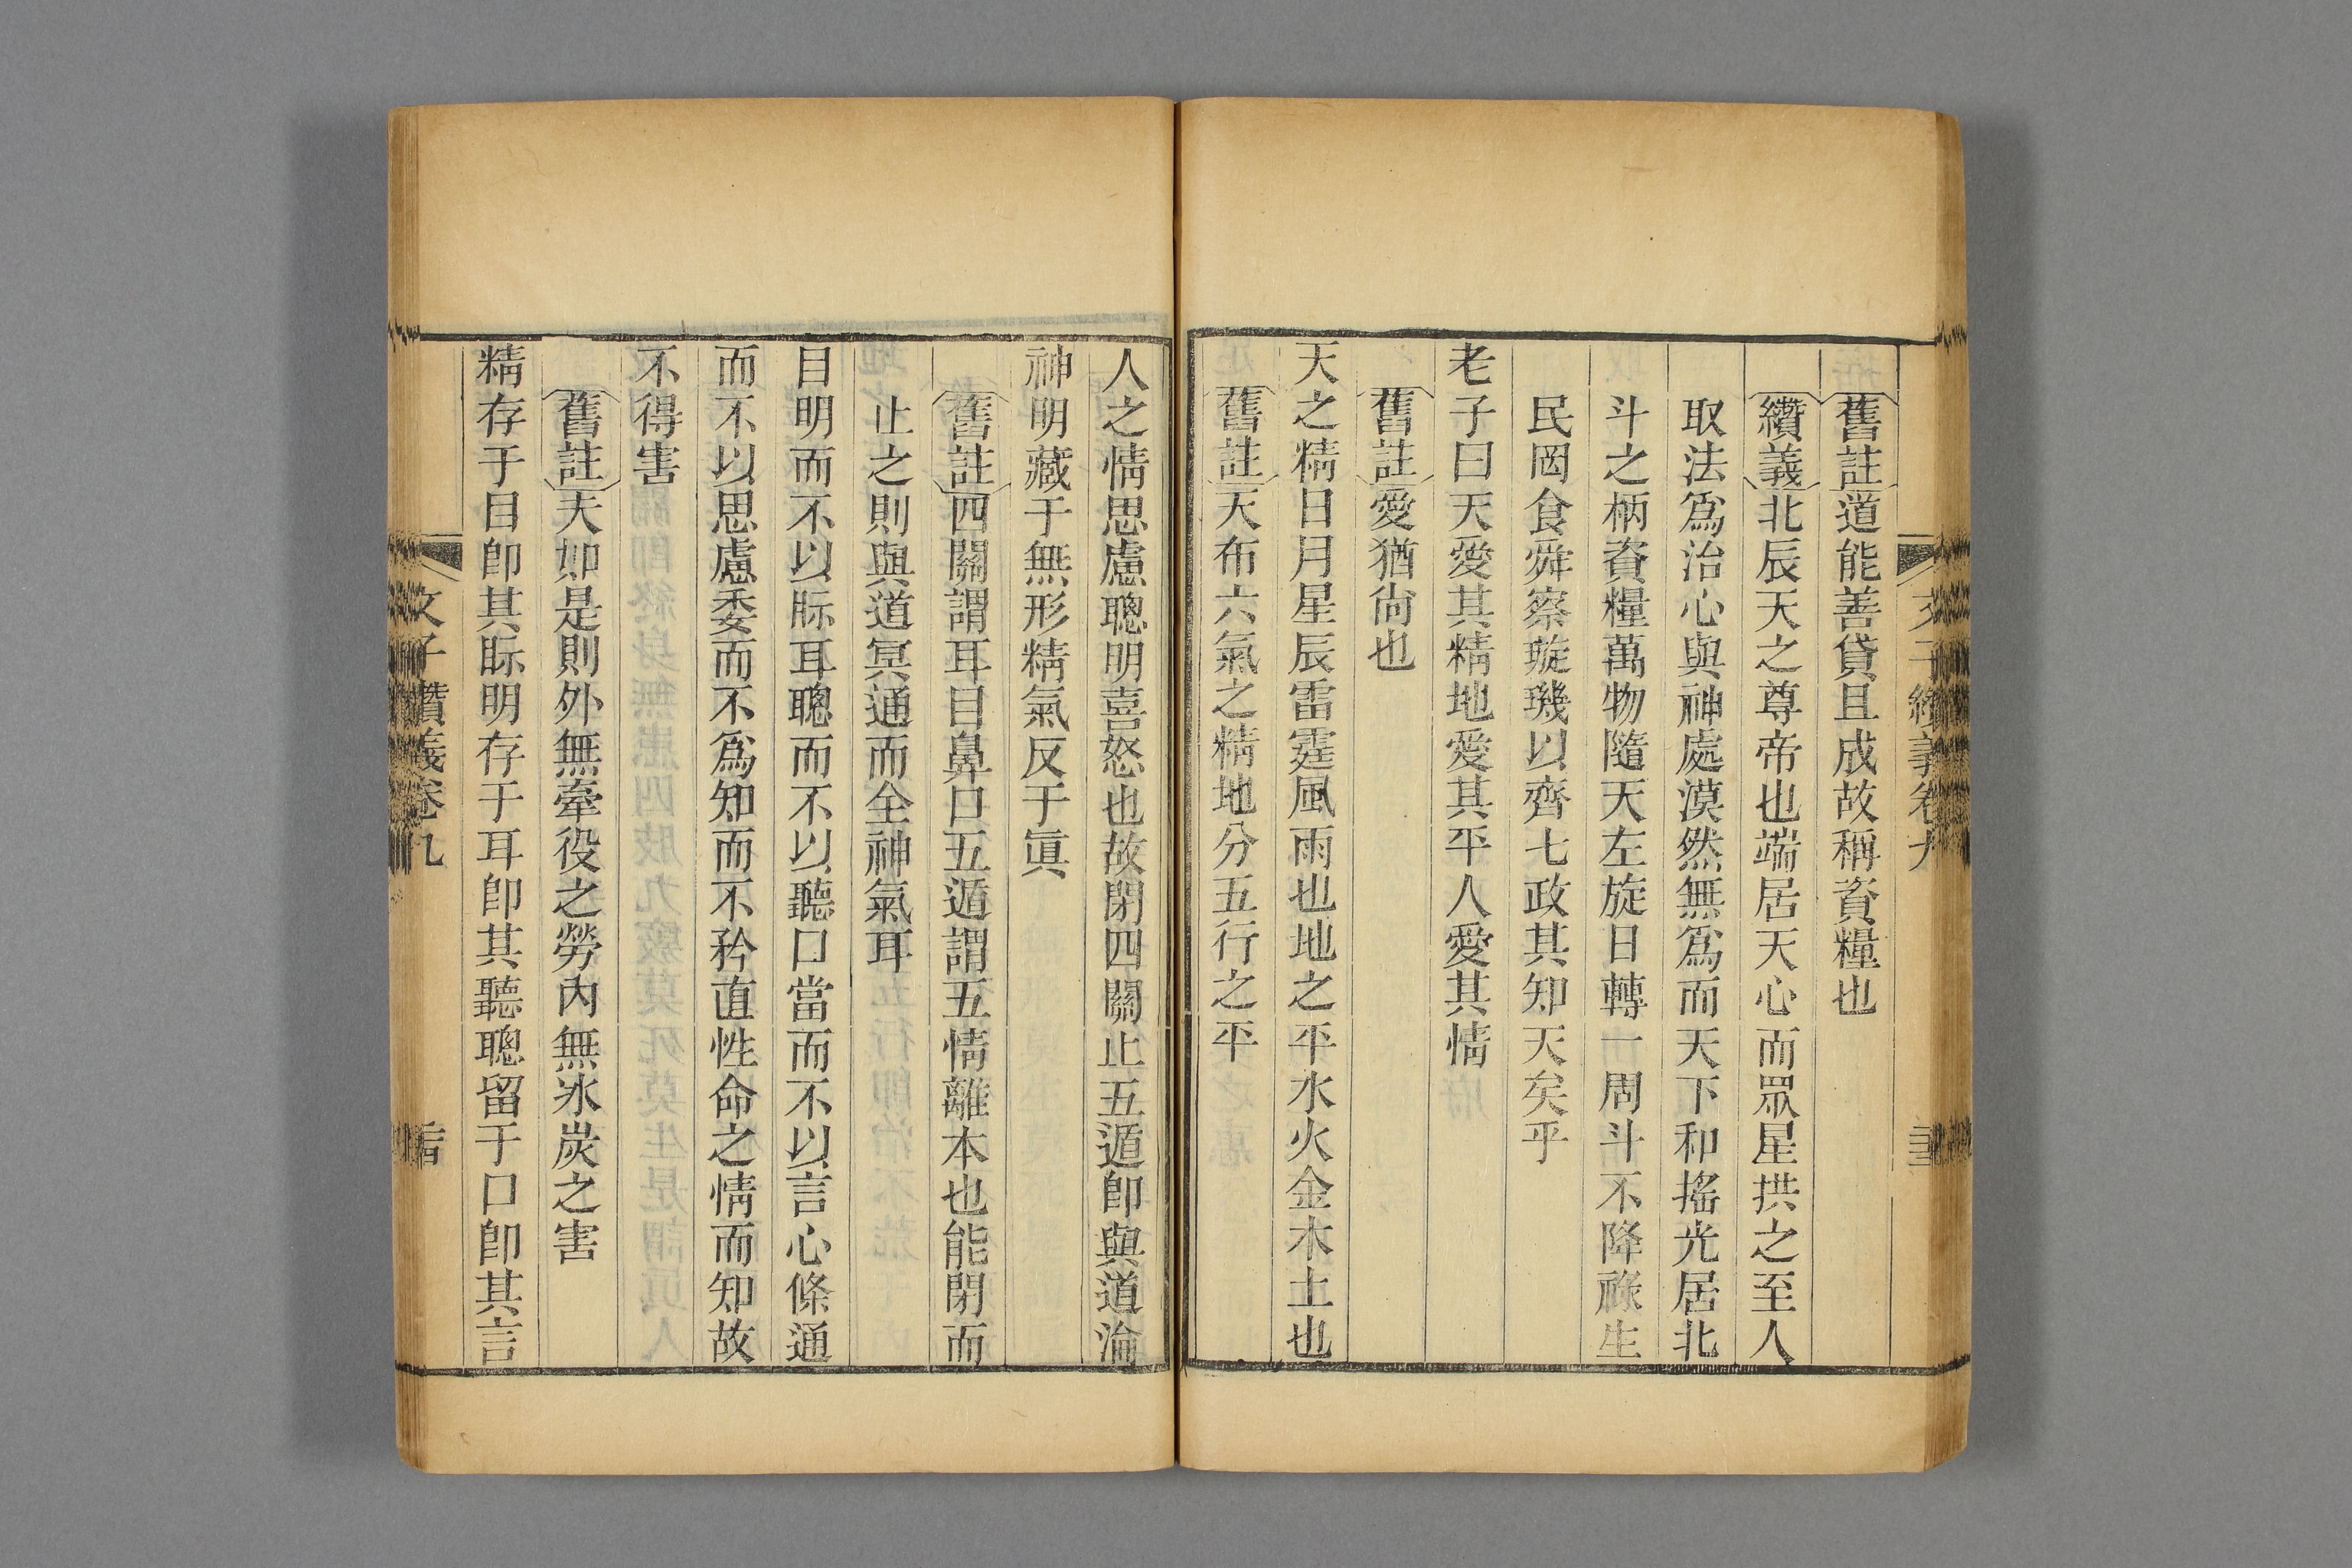 舊註道能善貸且成故稱資糧也
纘義北辰天之尊帝也端居天心而眾星拱之至人
取法爲治心與神處漠然無爲而天下和搖光居北
斗之柄資糧萬物隨天左旋日轉一周斗不降祿生
民罔食舜察璇璣以齊七政其知天矣乎
老子曰天愛其精地愛其平人愛其情
舊註愛猶尙也
天之精日月星辰雷霆風雨也地之平水火金木土也
舊註天布六氣之精地分五行之平
人之情思慮聰明喜怒也故閉四關止五遁卽與道淪
神明藏于無形精氣反于眞
舊註四關謂耳目鼻口五遁謂五情離本也能閉而
止之則與道冥通而全神氣耳
目明而不以眎耳聰而不以聽口當而不以言心條通
而不以思慮委而不爲知而不矜直性命之情而知故
不得害
舊註夫如是則外無牽役之勞內無氷炭之害
精存于目卽其眎明存于耳卽其聽聰留于口卽其言
文子纘義卷九